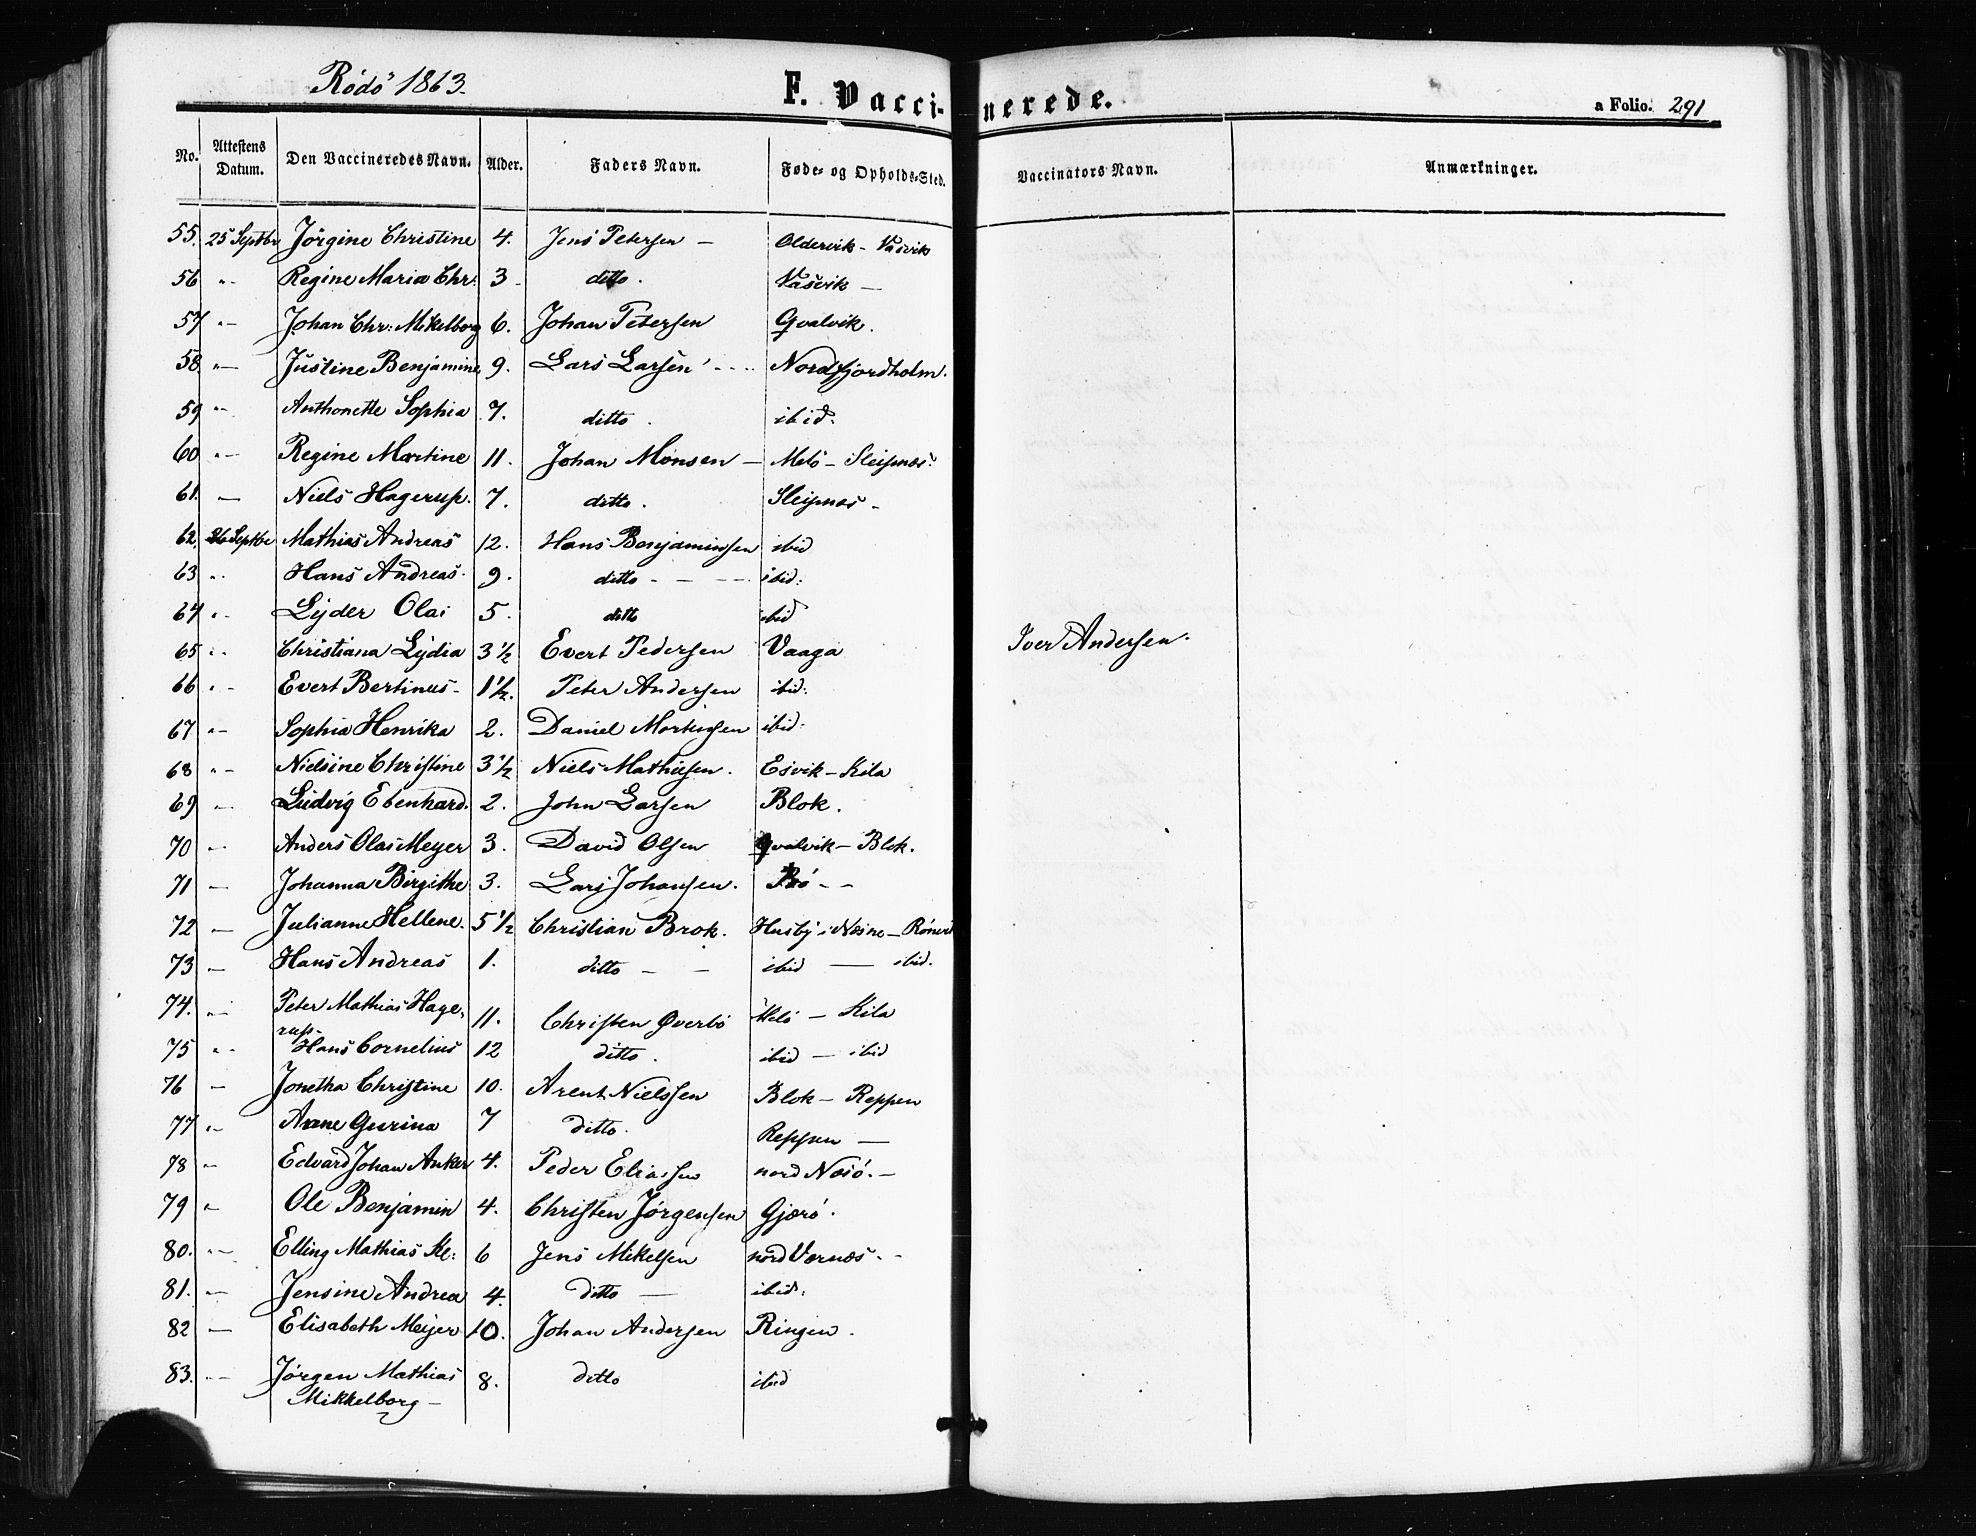 Rödö 1863.
F. Vaccinerede.
a Folio. 291
No. Attestens Datum. Den Vaccineredes Navn. Alder. Faders Navn. Føde- og Opholds-Sted. Vaccinators Navn. Anmærkninger.
55. 25 Septbr Jörgine Christine 4. Jens Petersen — Oldervik - Vasvik
56 „ Regine Maria Chr: 3 ditto. Vasvik —
57 „ Johan Chr: Mikelborg 6. Johan Petersen Qvalvik.
58. „ Justine Benjamine 9. Lars Larsen Nordfjordholm.
59 „ Anthonette Sophia 7. ditto. ibid:
60 „ Regine Martine 11. Johan Monsen — Melö - Sleipnæs:
61. — Niels Hagerup. 7. ditto. Sleipnæs -
62. 26 Septbr Mathias Andreas 12. Hans Benjaminsen ibid
63 „ Hans Andreas. 9. ditto - - - ibid:
64 „ Lyder Olai 5. ditto ibid
65 „ Christiana Lydia 3½ Evert Pedersen Vaaga
Iver Andersen.
66 „ Evert Bertinus - 1½. Peter Andersen ibid:
67 „ Sophia Henrika 2. Daniel Mortensen ibid:
68 „ Nielsine Christine 3½ Niels Mathisen. Esvik - Kila
69 „ Ludvig Ebenhard. 2. John Larsen Blok.
70 „ Anders Olai Meyer 3. David Olsen Qvalvik - Blok.
71 — Johanna Birgithe 3. Lars Johansen.
72 — Julianne Hellene. 5½ Christian Brok. Husby i Næsne -
73 — Hans Andreas 1. ditto - - ibid — ibid.
74. „ Peter Mathias Hagerup- 11. Christen Øverbö Melö - Kila
75 „ Hans Cornelius 12 ditto. ibid - ibid
76 — Jonetha Christine 10. Arent Nielssen Blok - Reppen
77 „ Anne Gurina 7 ditto. Reppen —
78 „ Edvard Johan Anker 4. Peder Eliassen nord Næsö. -
79 „ Ole Benjamin 4. Christen Jørgensen Gjærö.
80. „ Elling Mathias Kl: 6 Jens Mikelsen nord Værnæs. -
81. „ Jensine Andrea 4. ditto — ibid:
82 — Elisabeth Meijer 10. Johan Andersen Ringen.
83. „ Jørgen Mathias 8. ditto ibid
Mikkelborg -